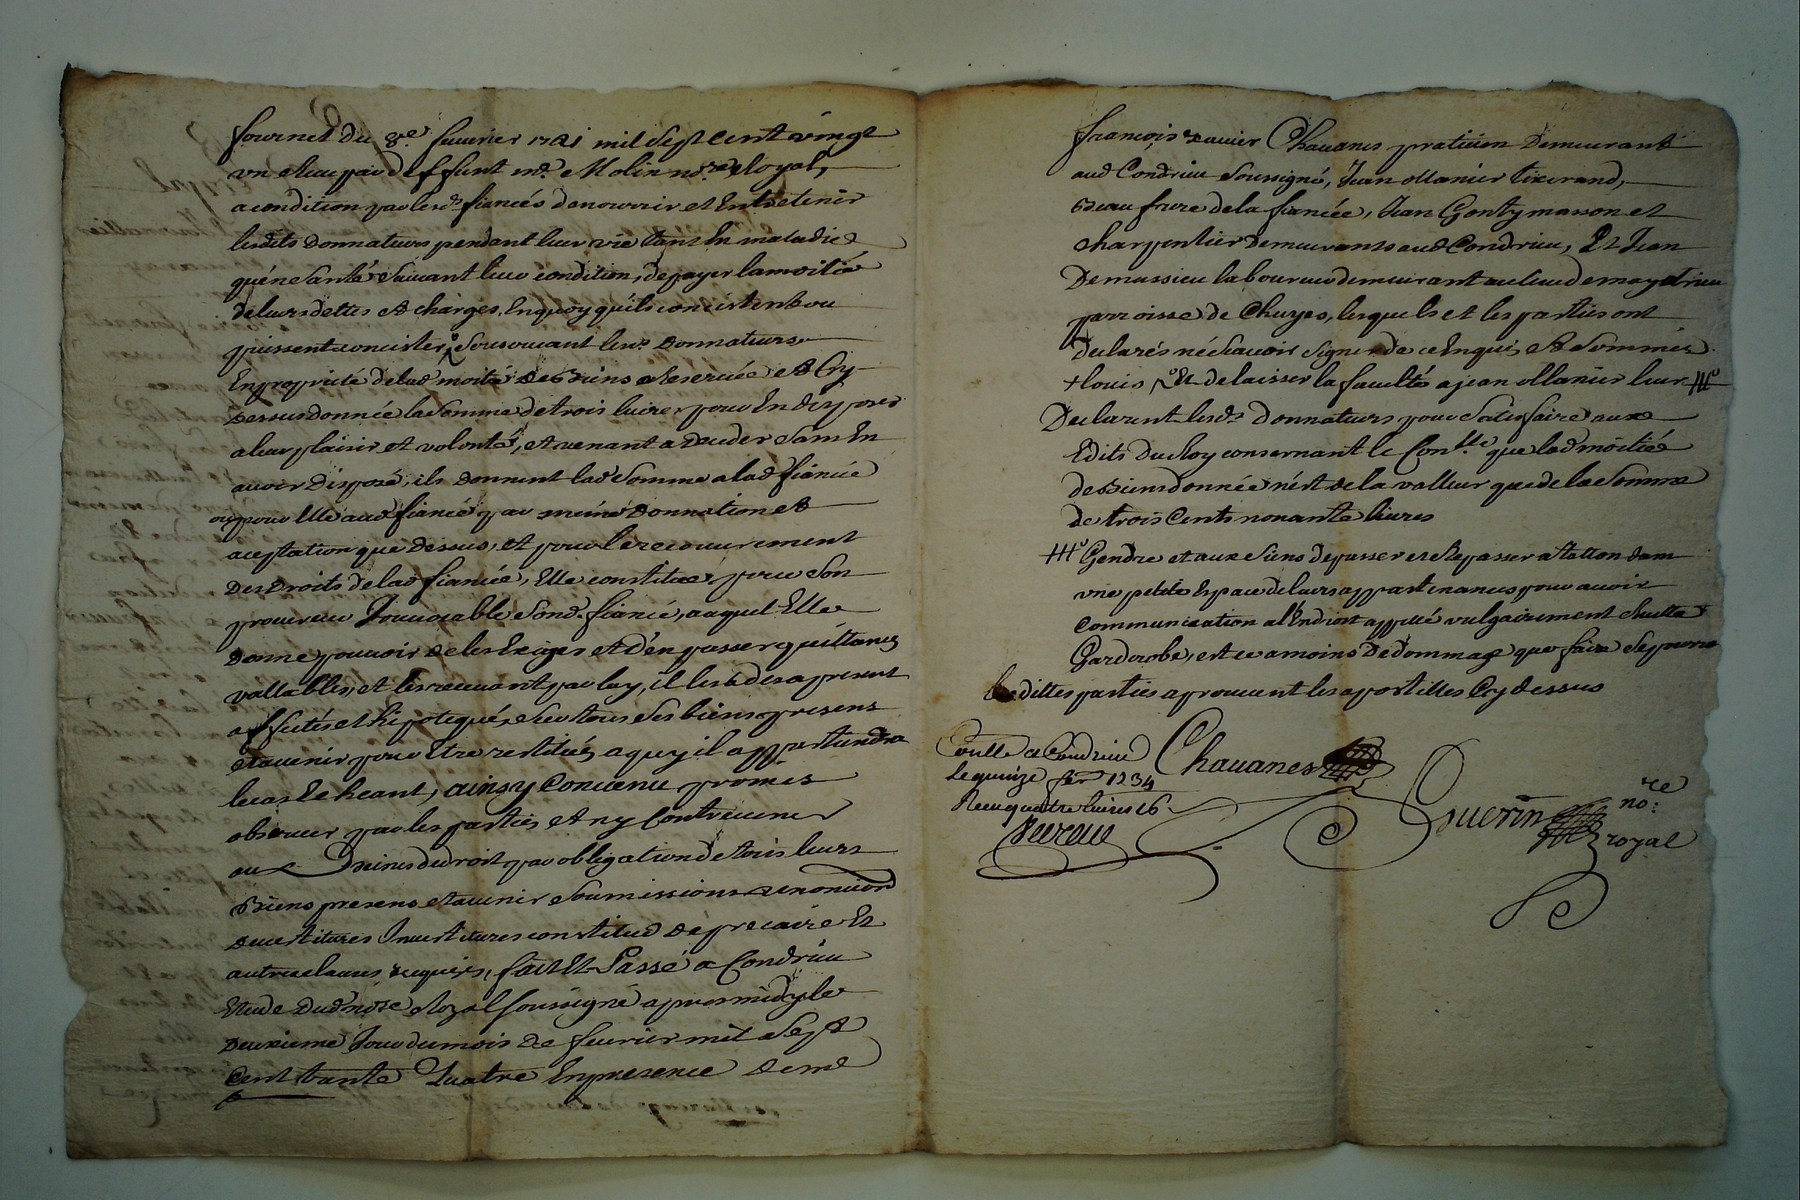 fournet du 8.e feuvrier 1721 mil sept cent vingt
vn Reçu par deffunt m.e Molin no.re Royal,
a condition par lesd. fiancés de nourrir et Entretenir
lesdits donnateurs pendant leur vie tant En maladie
qu'en santé suivant leur condition, de payer la moitié
de leurs dettes et charges, En quoy qu'ils concistent ou
puissent concister, se reservant lesd. donnateurs
En proprieté de lad. moitié de biens reservée et Cy
dessus donnée la somme de trois livres pour En disposer
a leur plaisir et volonté, et venant a deceder sans En
avoir disposé, ils donnent lad. somme a lad. fiancée
ou pour Elle aud. fiancé par meme donnation et
aceptation que dessus, et pour le recouvrement
des droits de lad. fiancée, Elle constitue pour son
procureur Irrevocable sond. fiancé, auquel Elle
donne pouvoir de les Exiger et d'en passer quittances
vallables, et les recevant par luy, il les a des a present
affectés et hipotequés sur tous ses biens presens
et avenir pour Etre restitués a quy il appartiendra
le cas Echeant, ainsy Convenu promis
observer par les parties et n'y Contrevenir
aux peines de droit par obligation de tous leurs
Biens presens et avenir soumissions renonciaôns
devestitures Investitures constituôn de precaire Et
autres clauses requises, fait Et Passé a Condrieu
Etude dud. no.re Royal soussigné apres midy le
deuxieme Jour du mois de feuvrier mil sept
Cent trante Quatre En presence de m.e
François Xavier Chavanes praticien demeurant
aud. Condrieu soussigné, Jean Manier tixerand,
Beau frere de la fiancée, Jean Gonty masson et
charpentier demeurants aud. Condrieu, Et Jean
Demassieu laboureur demeurant au lieu de
parroisse de Chuyes, lesquels et les parties ont
declarés ne scavoir signer de ce Enquis et sommés
+ louis Et de laisser la faculté a jean Manier leur
Declarent lesd. donnateurs pour satisfaire aux
Edits du Roy consernant le Con.lle que lad. moitié
de Biens donnée n'est de la valleur que de la somme
de trois Cents nonante livres
Gendre et aux siens de passer et Repasser a tallon dans
vne petite Espace de leurs appartenances pour avoir
communication a l'Endroit appellé vulgairement
Garderobe, et ce a moins de dommage que faire se pourra
lesdittes parties aprouvent les apostilles Cy dessus
Conllé a Condrieu
le quinze fer 1734
Receu quatre livres 16
Chavanes
Guerin no.re
royal